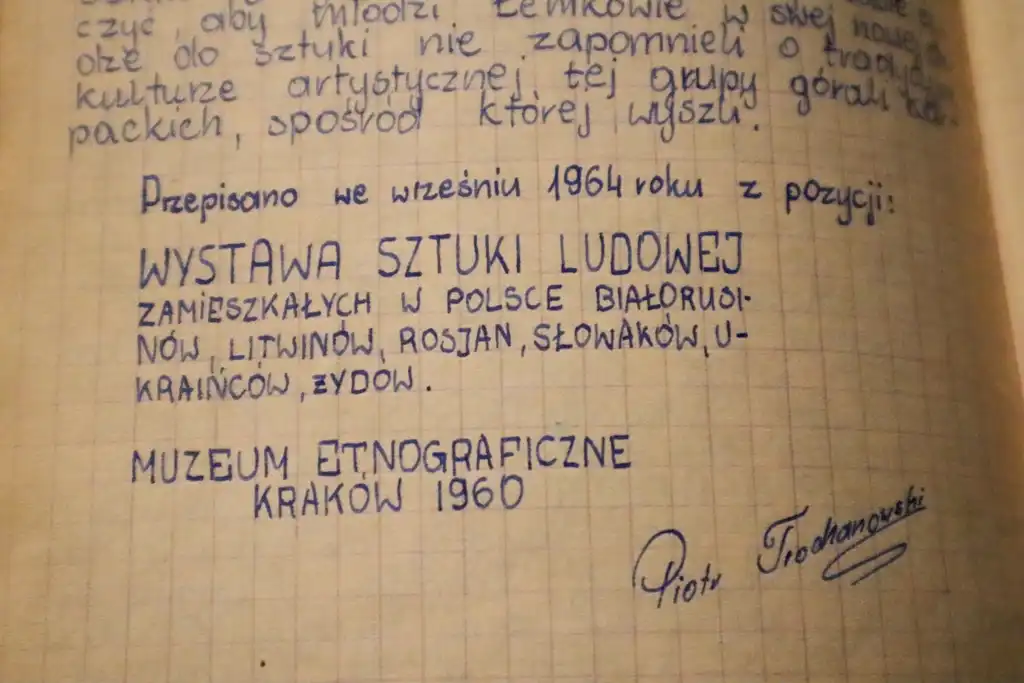 czyć, aby młodzi Łemkowie w swej nowej
dze do sztuki nie zapomnieli o
kulturze artystycznej, tej grupy górali kar-
packich, spośród której wyszli.
Przepisano we wrześniu 1964 roku z pozycji:
WYSTAWA SZTUKI LUDOWEJ
ZAMIESZKAŁYCH W POLSCE BIAŁORUSI-
NÓW, LITWINÓW, ROSJAN, SŁOWAKÓW, U-
KRAIŃCÓW, ŻYDÓW.
MUZEUM ETNOGRAFICZNE
KRAKÓW 1960
Piotr Trochanowski